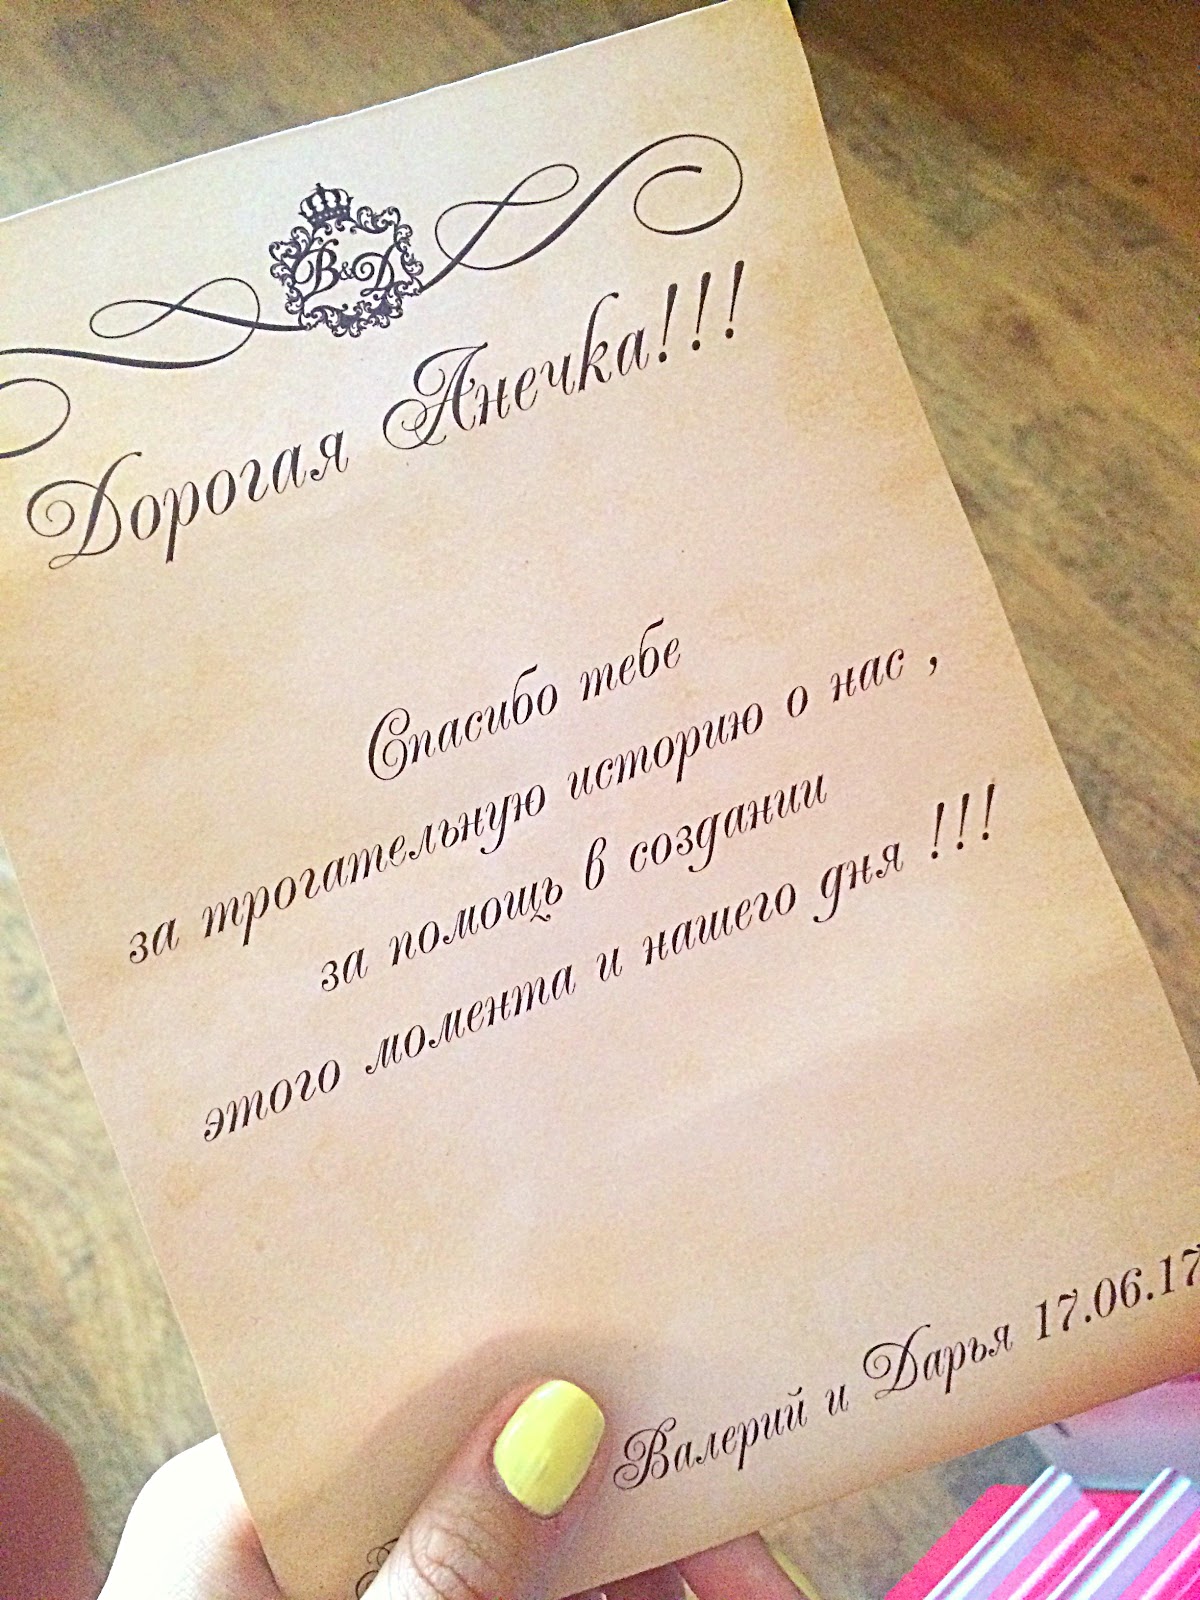 B&D
Дорогая Анечка!!!
Спасибо тебе
за трогательную историю о нас ,
за помощь в создании
этого момента и нашего дня !!!
Валерий и Дарья 17.06.17